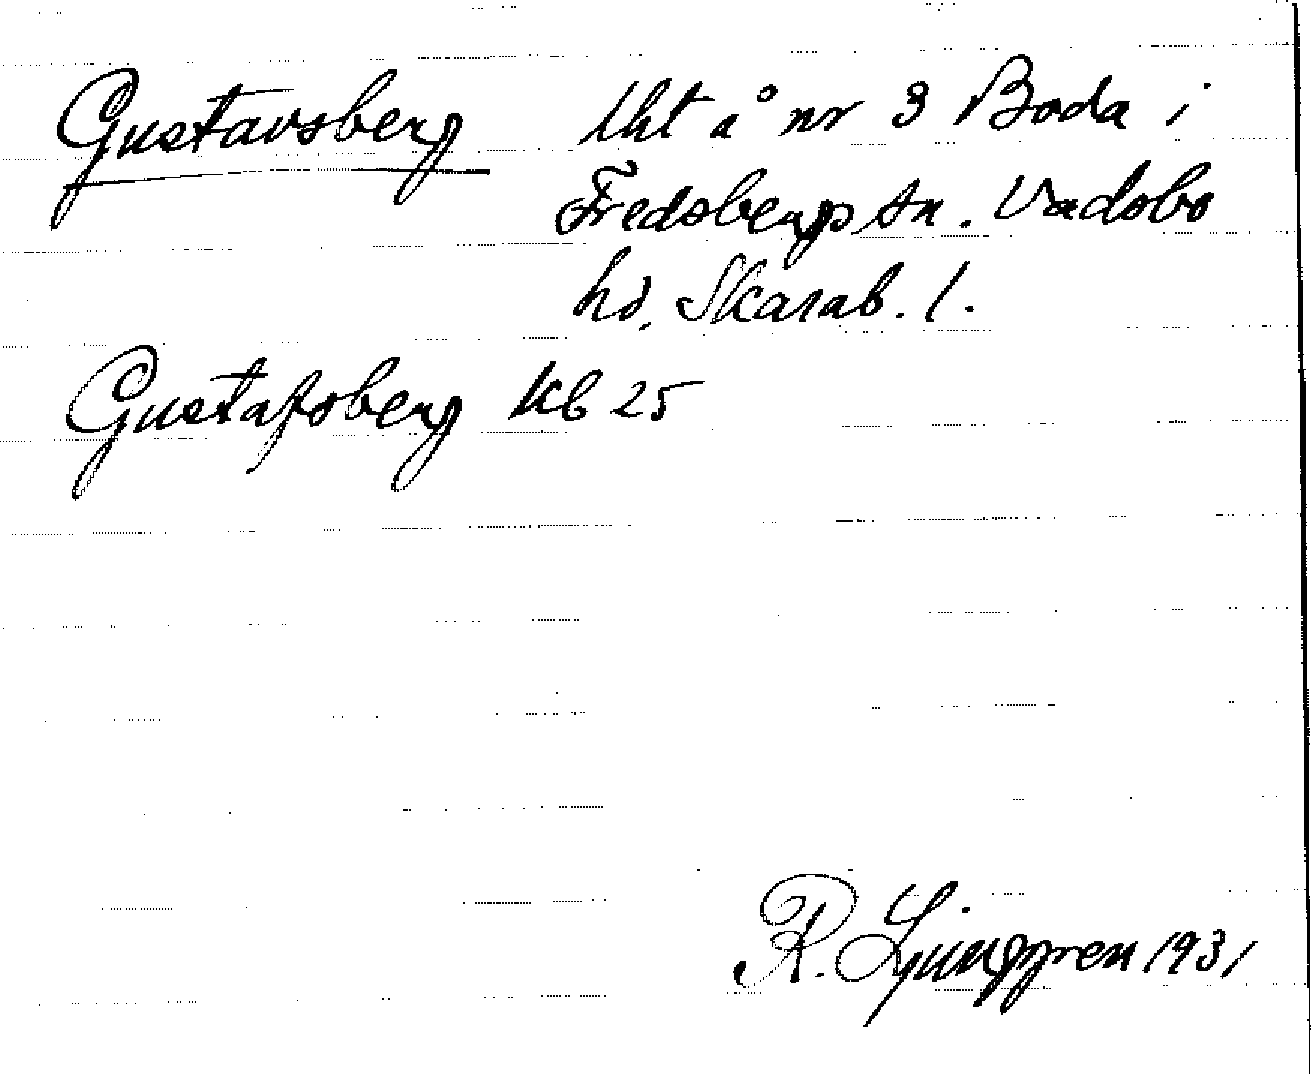 Gustavsberg lht å nr 3 Boda i
Fredsbergs sn. Vadsbo
hd. Skarab. l.
Gustafsberg kb 25
R. Ljunggren 1931